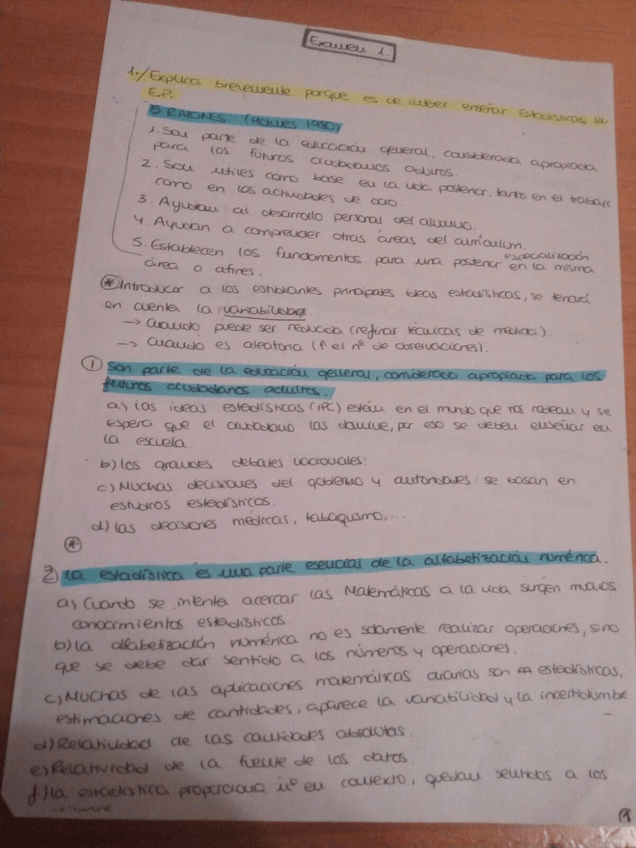 Examen 1.
1./ Explica brevemente porque es de interes enseñar Estadísticas en
E.P:
5 RAZONES (Holmes 1980)
1. Son parte de la educación general, considerada apropiada
para los futuros ciudadanos adultos.
2. Son utiles como base en la vida posterior, tanto en el trabajo
como en las actividades de ocio.
3. Ayudan al desarrollo personal del alumno.
4. Ayudan a comprender otras áreas del curriculum.
5. Establecen los fundamentos para una posterior especialización en la misma
área o afines.
* Introducir a los estudiantes principales ideas estadísticas, se tendrá
en cuenta la variabilidad.
→ Cuando puede ser reducida (refinar técnicas de medida).
→ Cuando es aleatoria (↑ el nº de observaciones).
① Son parte de la educación general, considerada apropiada para los
futuros ciudadanos adultos.
a) las ideas estadísticas (IPC) están en el mundo que nos rodean y se
espera que el ciudadano las domine, por eso se deben enseñar en
la escuela.
b) los grandes debates nacionales:
c) Muchas decisiones del gobierno y autoridades se basan en
estudios estadísticos.
d) las decisiones médicas, tabaquismo,...
*
2) la estadística es una parte esencial de la alfabetización numérica.
a) Cuando se intenta acercar las Matemáticas a la vida surgen muchos
conocimientos estadísticos.
b) la alfabetización numérica no es solamente realizar operaciones, sino
que se debe dar sentido a los números y operaciones.
c) Muchas de las aplicaciones matemáticas diarias son estadísticas,
estimaciones de cantidades, aparece la variabilidad y la incertidumbre
d) Relatividad de las cantidades absolutas.
e) Relatividad de la fuente de los datos.
f) la estadística proporciona nº en contexto, quedan sentidos a los